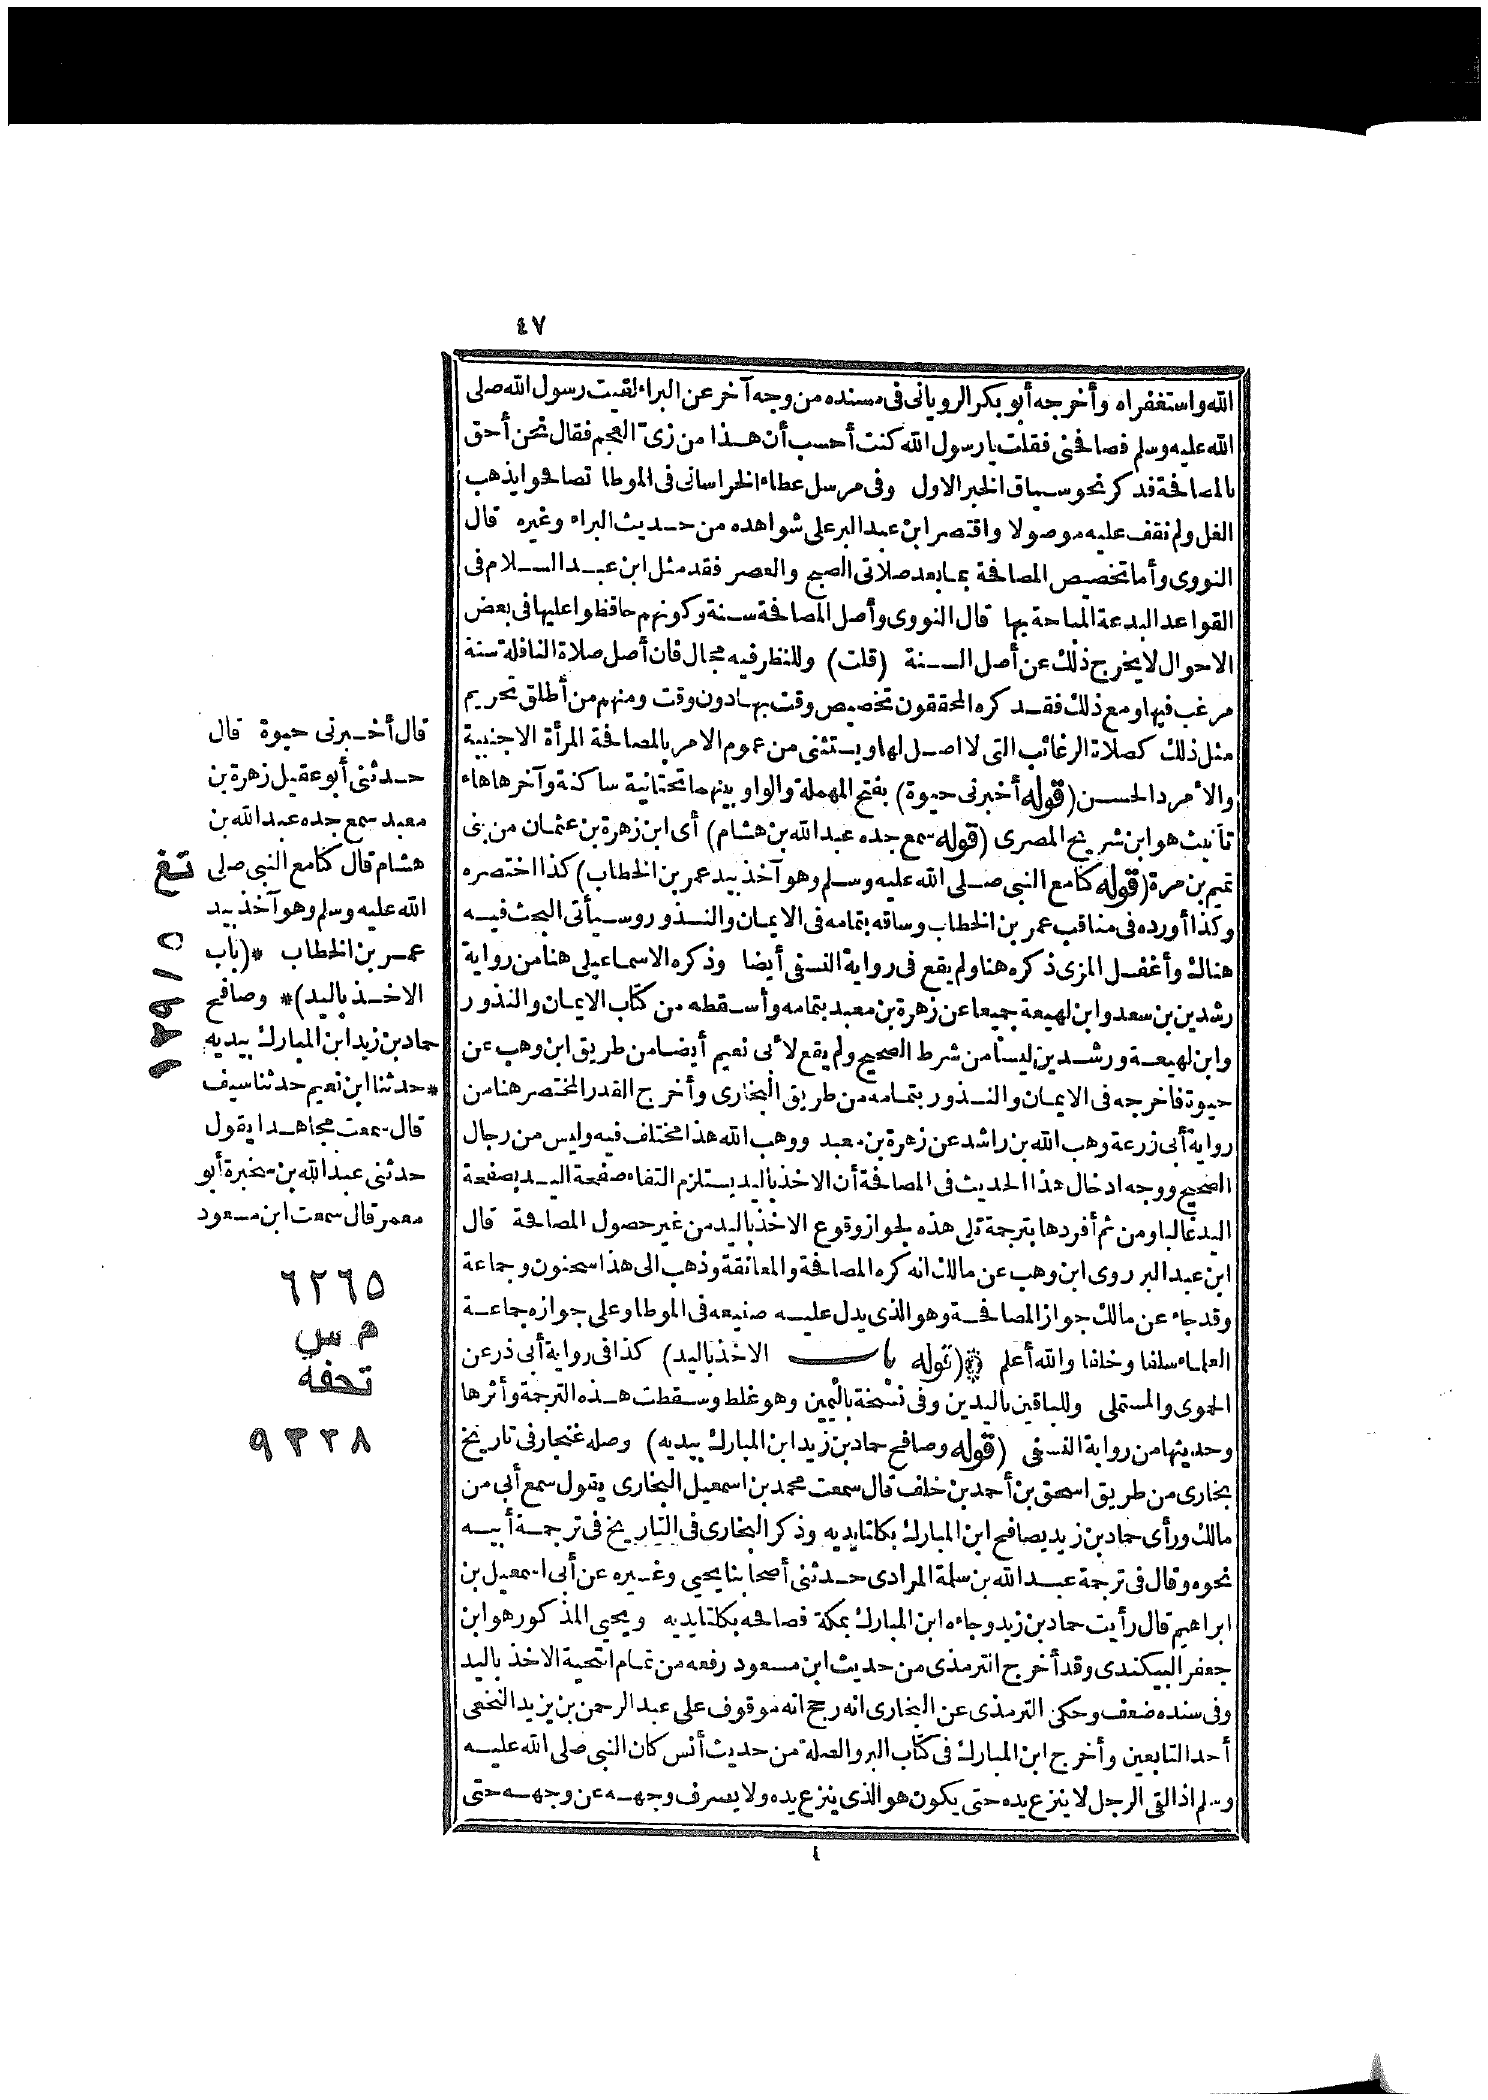 ٤٧
الله واستغفراه وأخرجه أبو بكر الروياني في مسنده من وجه آخر عن البراء لقيت رسول الله صلى
الله عليه وسلم فصافحني فقلت يا رسول الله كنت أحسب أن هذا من زي العجم فقال نحن أحق
بالمصافحة فذكر نحو سياق الخبر الاول وفي مرسل عطاء الخراساني في الموطا تصافحوا يذهب
الغل ولم نقف عليه موصولا واقتصر ابن عبد البر على شواهده من حديث البراء وغيره قال
النووي وأما تخصيص المصافحة بما بعد صلاتي الصبح والعصر فقد مثل ابن عبد السلام في
القواعد البدعة المباحة بها قال النووي وأصل المصافحة سنة وكونهم حافظوا عليها في بعض
الاحوال لا يخرج ذلك عن أصل السنة (قلت) وللنظر فيه مجال فان أصل صلاة النافلة سنة
مرغب فيها ومع ذلك فقد كره المحققون تخصيص وقت بها دون وقت ومنهم من أطلق تحريم
مثل ذلك كصلاة الرغائب التي لا اصل لها ويستثنى من عموم الامر بالمصافحة المرأة الاجنبية
والأمرد الحسن (قوله أخبرني حيوة) بفتح المهملة والواو بينهما تحتانية ساكنة وآخرها هاء
تأنيث هو ابن شريح المصري (قوله سمع جده عبد الله بن هشام) أي ابن زهرة بن عثمان من بني
تميم بن مرة (قوله كنا مع النبي صلى الله عليه وسلم وهو آخذ بيد عمر بن الخطاب) كذا اختصره
وكذا أورده في مناقب عمر بن الخطاب وساقه بتمامه في الايمان والنذور وسيأتي البحث فيه
هناك وأغفل المزي ذكره هنا ولم يقع في رواية النسفي أيضا وذكره الاسماعيلي هنا من رواية
رشدين بن سعد وابن لهيعة جميعا عن زهرة بن معبد بتمامه وأسقطه من كتاب الايمان والنذور
وابن لهيعة ورشدين ليسا من شرط الصحيح ولم يقع لأبي نعيم أيضا من طريق ابن وهب عن
حيوة فاخرجه في الايمان والنذور بتمامه من طريق البخاري وأخرج القدر المختصر هنا من
رواية أبي زرعة وهب الله بن راشد عن زهرة بن معبد ووهب الله هذا مختلف فيه وليس من رجال
الصحيح ووجه ادخال هذا الحديث في المصافحة أن الاخذ باليد يستلزم التقاء صفحة اليد بصفحة
اليد غالبا ومن ثم أفردها بترجمة تلي هذه لجواز وقوع الاخذ باليد من غير حصول المصافحة قال
ابن عبد البر روى ابن وهب عن مالك انه كره المصافحة والمعانقة وذهب الى هذا سحنون وجماعة
وقد جاء عن مالك جواز المصافحة وهو الذي يدل عليه صنيعه في الموطا وعلى جوازه جماعة
العلماء سلفا وخلفا والله أعلم ❊(قوله باب الاخذ باليد) كذا في رواية أبي ذر عن
الحموي والمستملي وللباقين باليدين وفي نسخة باليمين وهو غلط وسقطت هذه الترجمة وأثرها
وحديثها من رواية النسفي (قوله وصافح حماد بن زيد ابن المبارك بيديه) وصله غنجار في تاريخ
بخارى من طريق اسحق بن أحمد بن خلف قال سمعت محمد بن اسمعيل البخاري يقول سمع أبي من
مالك ورأى حماد بن زيد يصافح ابن المبارك بكلتا يديه وذكر البخاري في التاريخ في ترجمة أبيه
نحوه وقال في ترجمة عبد الله بن سلمة المرادي حدثني أصحابنا يحيى وغيره عن أبي اسمعيل بن
ابراهيم قال رأيت حماد بن زيد وجاءه ابن المبارك بمكة فصافحه بكلتا يديه ويحيى المذكور هو ابن
جعفر البيكندي وقد أخرج الترمذي من حديث ابن مسعود رفعه من تمام التحية الاخذ باليد
وفي سنده ضعف وحكى الترمذي عن البخاري انه رجح انه موقوف على عبد الرحمن بن يزيد النخعي
أحد التابعين وأخرج ابن المبارك في كتاب البر والصلة من حديث أنس كان النبي صلى الله عليه
وسلم اذا لقي الرجل لا ينزع يده حتى يكون هو الذي ينزع يده ولا يصرف وجهه عن وجهه حتى
قال أخبرني حيوة قال
حدثني أبو عقيل زهرة بن
معبد سمع جده عبد الله بن
هشام قال كنا مع النبي صلى
الله عليه وسلم وهو آخذ بيد
عمر بن الخطاب *(باب
الاخذ باليد)* وصافح
حماد بن زيد ابن المبارك بيديه
*حدثنا ابن نعيم حدثنا سيف
قال سمعت مجاهدا يقول
حدثني عبد الله بن سخبرة أبو
معمر قال سمعت ابن مسعود
تغ
٦٢٦٥
م س
تحفه
٩٣٣٨